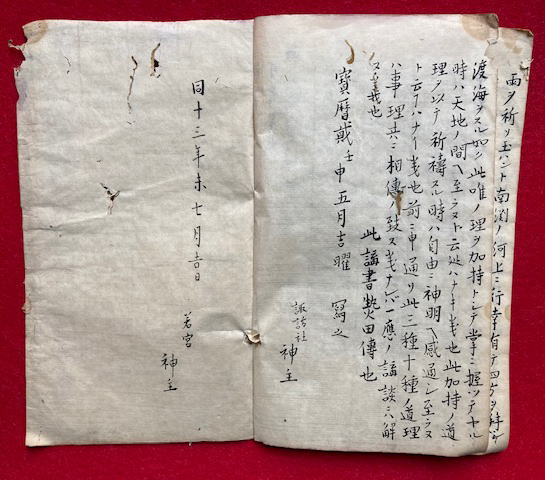 雨ヲ祈リ玉ハント南淵ノ河上ニ行幸有テ四方ヲ拜シ
渡海ヲスル如シ此唯ノ理ヲ加持トシテ掌ニ握ツテヤル
時ハ天地ノ間ヘ至ラヌト云処ハナキ義也此加持ノ道
理ヲ以テ祈禱スル時ハ自由ニ神明ヘ感通シ至ラヌ
ト云フハナイ義也前ニ申通リ此三種十種ノ道理
ハ事理共ニ相傳ノ致ス義ナレバ一應ノ講談ニハ解
ヌ義也
此講書熱田傳也
寶曆戴壬申五月吉曜 寫之
諏訪社 神主
同十三年未七月吉日
若宮 神主